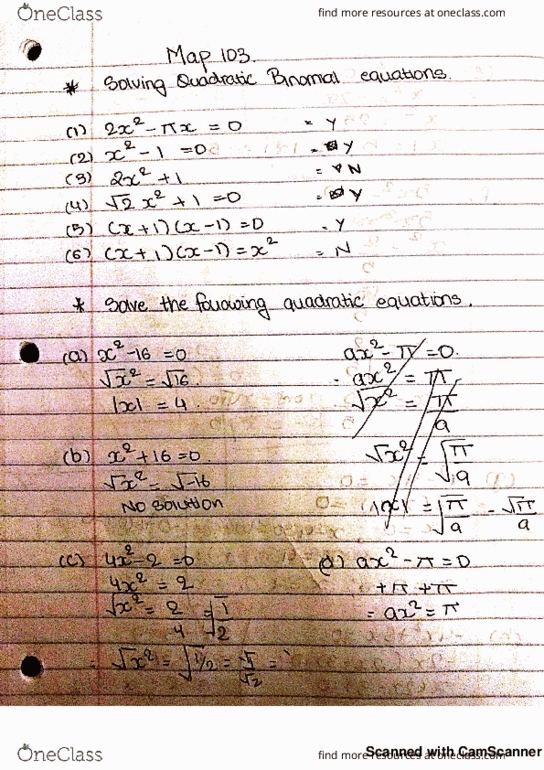 OneClass
find more resources at oneclass.com
Map 103.
* Solving Quadratic Binomial equations.
(1) 2x² - πx = 0 = Y
(2) x² - 1 = 0 = Y
(3) 2x² + 1 = N
(4) √2 x² + 1 = 0 = Y
(5) (x+1)(x-1) = 0 = Y
(6) (x+1)(x-1) = x² = N
* Solve the following quadratic equations.
(a) x² - 16 = 0
√x² = √16
|x| = 4
(b) x² + 16 = 0
√x² = √-16
No solution
(c) 4x² - 2 = 0
4x² = 2
√x² = 2/4 = √1/2
= √x² = √1/2 = √1/√2 =
ax² - π = 0.
ax² = π
√x² = π/a
√x² = √π/a
|x| = √π/a - √π/a
(d) ax² - π = 0
+π +π
= ax² = π
OneClass
find more resources at oneclass.com
Scanned with CamScanner